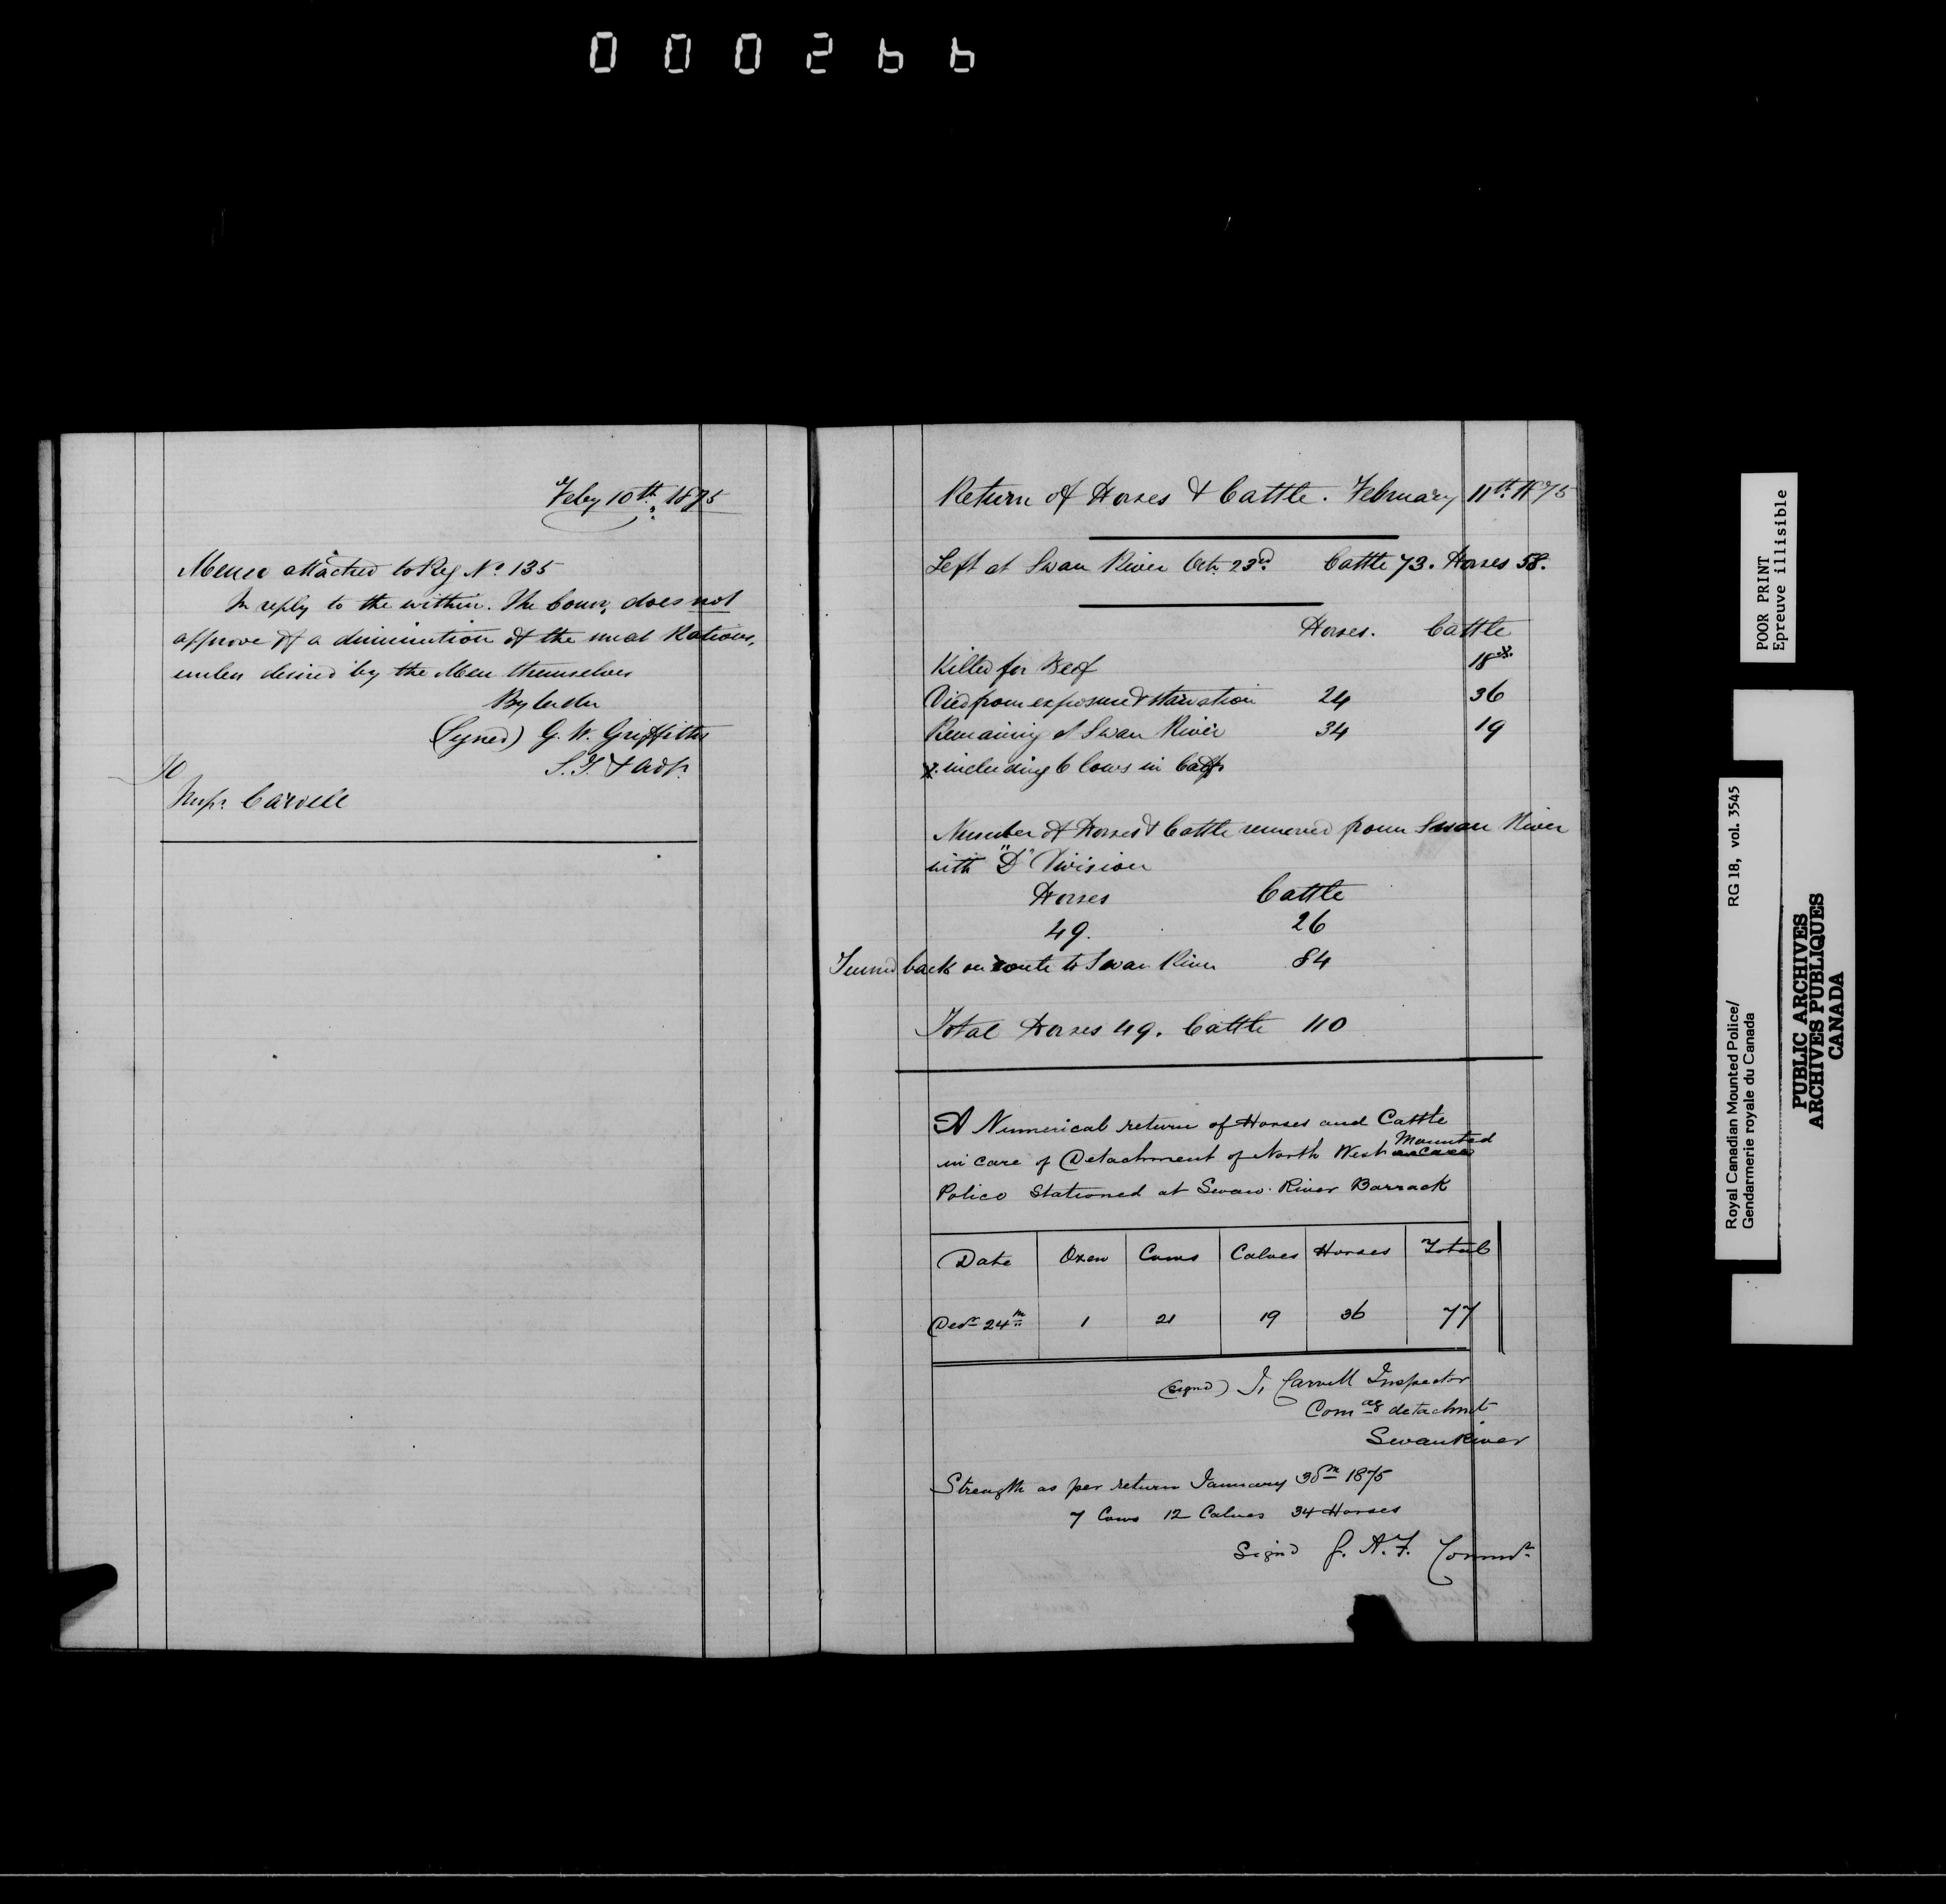 000266
Feby 10th 1875
Memo attached to Reg No. 135
In reply to the within. The Comr. does not
approve of a diminution of the meat Rations,
unless desired by the Men themselves
By order
(Signed) G. W. Griffiths
S. I. & Adjt.
To
Insp. Carvell
Return of Horses & Cattle. February 11th. 1875
Left at Swan River Oct. 23rd. Cattle 73. Horses 58.
Horses. Cattle
Killed for Beef 18 x.
Died from exposure & starvation 24 36
Remaining at Swan River 34 19
x. including 6 Cows in Calf
Number of Horses & Cattle removed from Swan River
with "D" Division
Horses Cattle
49. 26
Turned back en route to Swan River 84
Total Horses 49. Cattle 110
A Numerical return of Horses and Cattle
in care of Detachment of North West Mounted
Police Stationed at Swan River Barrack
Date Oxen Cows Calves Horses Total
Decr 24th 1 21 19 36 77
(signd) J. Carvell Inspector
Comag detachmt
Swan River
Strength as per return January 30th 1875
7 Cows 12 Calves 34 Horses
Signd G. A. F. Commr.
POOR PRINT
Epreuve illisible
RG 18, vol. 3545
Royal Canadian Mounted Police/
Gendarmerie royale du Canada
PUBLIC ARCHIVES
ARCHIVES PUBLIQUES
CANADA